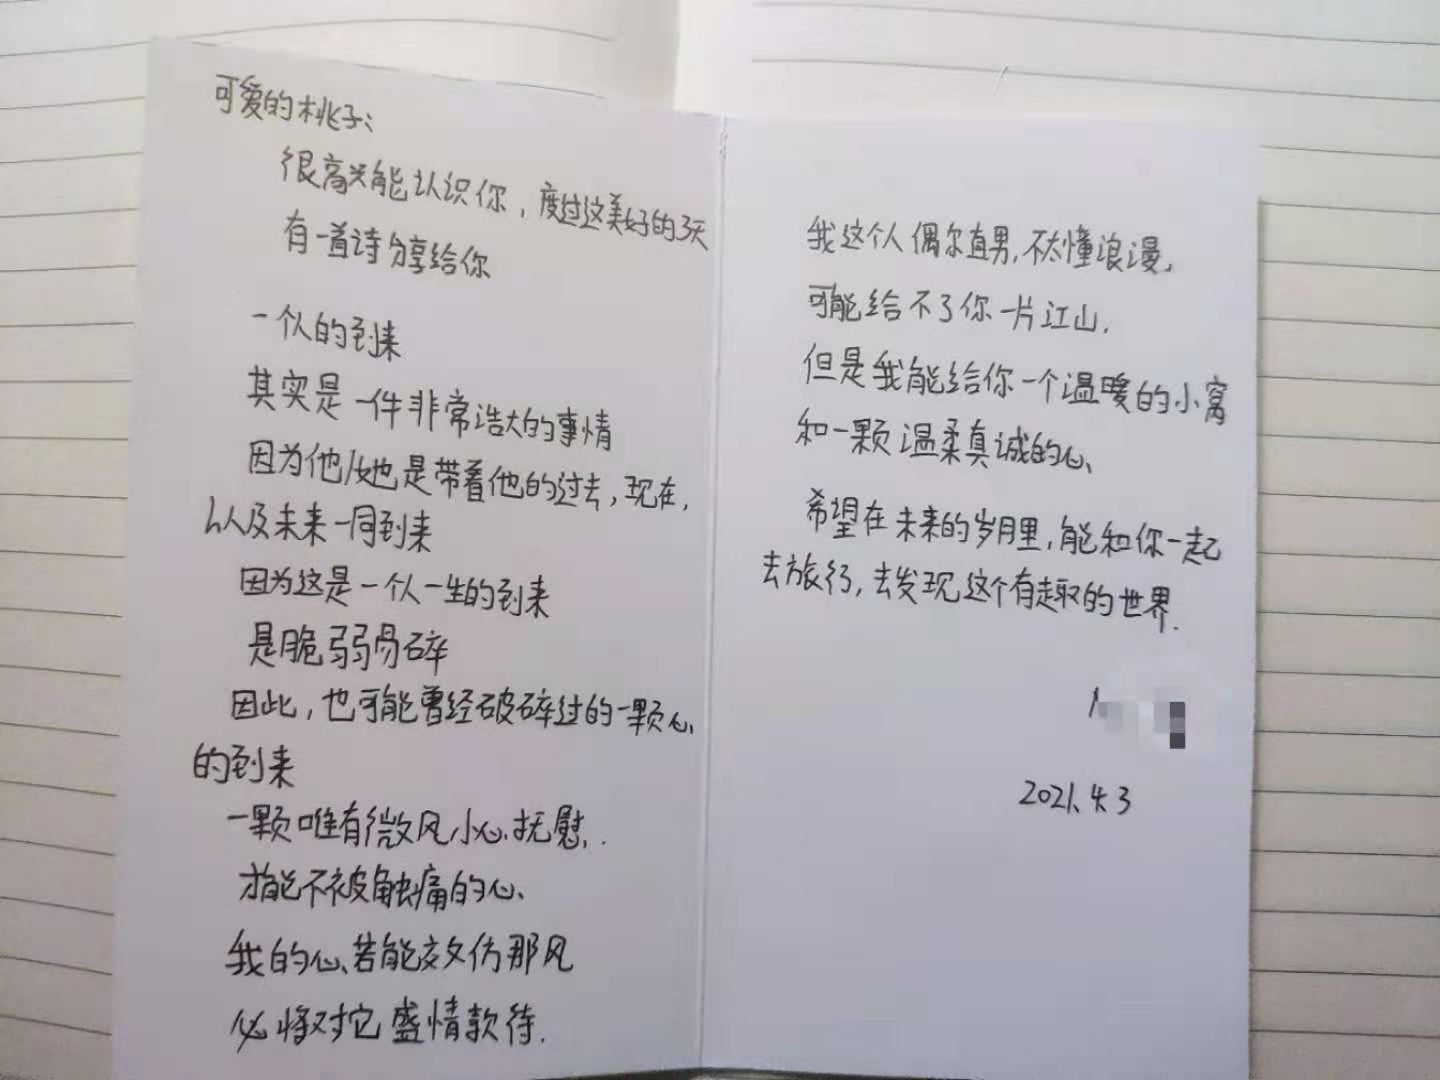 可爱的桃子:
很高兴能认识你，度过这美好的3天
有一首诗分享给你
一个人的到来
其实是一件非常浩大的事情
因为他/她是带着他的过去，现在，
以及未来一同到来
因为这是一个人一生的到来
是脆弱易碎
因此，也可能曾经破碎过的一颗心
的到来
一颗唯有微风小心抚慰，
才能不被触痛的心
我的心若能效仿那风
必将对它盛情款待.
我这个人偶尔直男，不太懂浪漫，
可能给不了你一片江山，
但是我能给你一个温暖的小窝
和一颗温柔真诚的心
希望在未来的岁月里，能和你一起
去旅行，去发现这个有趣的世界.
2021.4.3